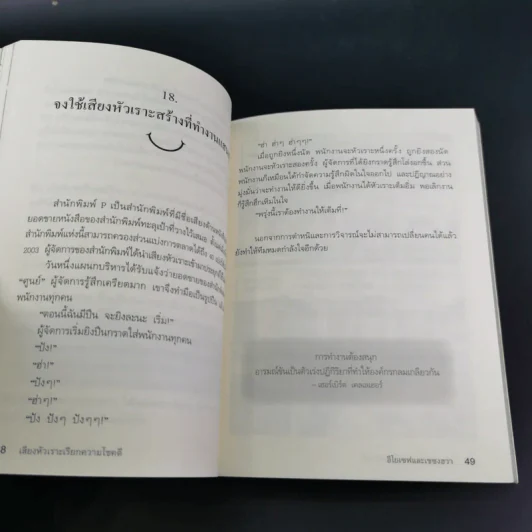 18.
จงใช้เสียงหัวเราะสร้างที่ทำงาน
สำนักพิมพ์ P เป็นสำนักพิมพ์ที่มีชื่อเสียงด้าน
ยอดขายหนังสือของสำนักพิมพ์ทะลุเป้าที่วางไว้เสมอ
สำนักพิมพ์แห่งนี้สามารถครองส่วนแบ่งการตลาดได้ถึง
2003 ผู้จัดการของสำนักพิมพ์ได้นำเสียงหัวเราะเข้ามา
วันหนึ่งแผนกบริหารได้รับแจ้งว่ายอดขายของสำนัก
"ศูนย์" ผู้จัดการรู้สึกเครียดมาก เขาจึงทำมือเป็นรูปปืน
พนักงานทุกคน
"ตอนนี้ฉันมีปืน จะยิงละนะ เริ่ม!"
ผู้จัดการเริ่มยิงปืนกราดใส่พนักงานทุกคน
"ปัง!"
"ฮ่า!"
"ปังๆ!"
"ฮ่าๆ!"
"ปัง ปังๆ ปังๆๆ!"
8 เสียงหัวเราะเรียกความโชคดี
"ฮ่า ฮ่าๆ ฮ่าๆๆ!"
เมื่อถูกยิงหนึ่งนัด พนักงานจะหัวเราะหนึ่งครั้ง ถูกยิงสองนัด
พนักงานจะหัวเราะสองครั้ง ผู้จัดการที่ได้ยิงกราดรู้สึกโล่งอกขึ้น ส่วน
พนักงานก็เหมือนได้กำจัดความรู้สึกผิดในใจออกไป และปฏิญาณอย่าง
มุ่งมั่นว่าจะทำงานให้ดียิ่งขึ้น เมื่อพนักงานได้หัวเราะเต็มอิ่ม พอเลิกงาน
ก็รู้สึกฮึกเหิมในใจ
"พรุ่งนี้เราต้องทำงานให้เต็มที่!"
นอกจากการตำหนิและการวิจารณ์จะไม่สามารถเปลี่ยนคนได้แล้ว
ยังทำให้ทีมหมดกำลังใจอีกด้วย
การทำงานต้องสนุก
อารมณ์ขันเป็นตัวเร่งปฏิกิริยาที่ทำให้องค์กรกลมเกลียวกัน
– เฮอร์เบิร์ต เคลเลเฮอร์
อีโยเซฟและเชซองฮวา 49